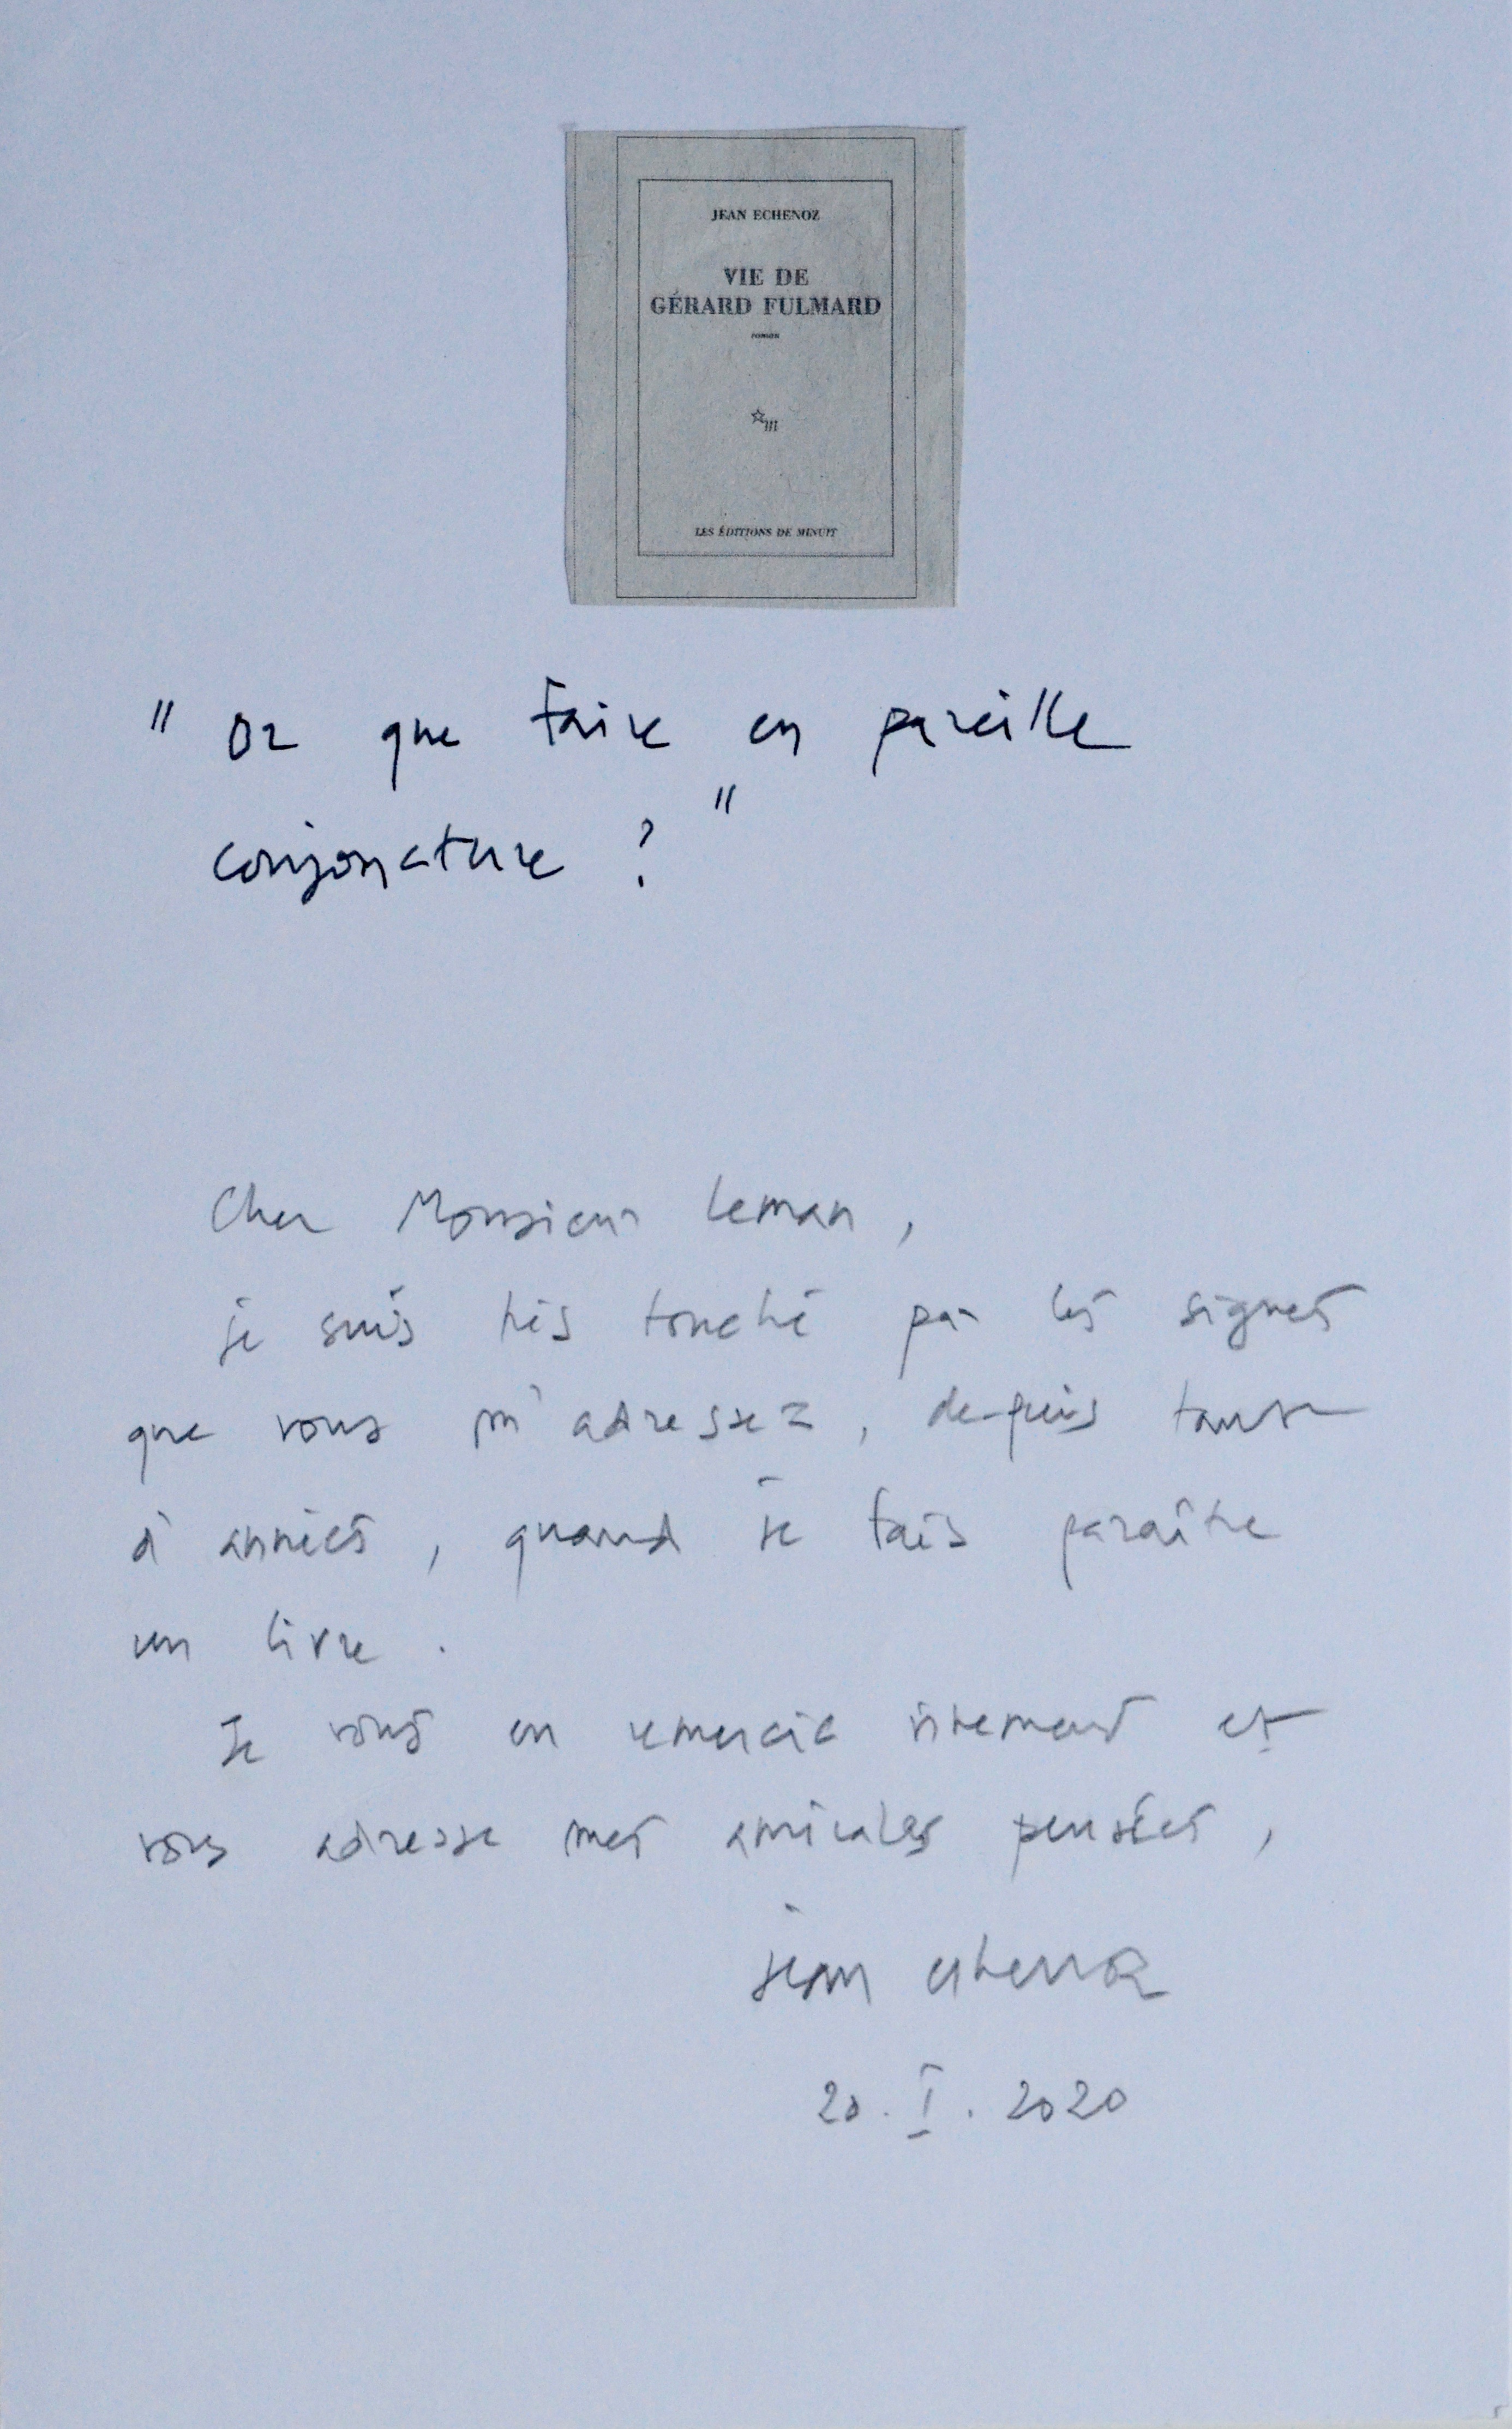 JEAN ECHENOZ
VIE DE
GÉRARD FULMARD
roman
LES ÉDITIONS DE MINUIT
" Or que faire en pareille
conjoncture ? "
Cher Monsieur Leman,
je suis très touché par les signes
que vous m'adressez, depuis tant
d'années, quand je fais paraître
un livre.
Je vous en remercie vivement et
vous adresse mes amicales pensées,
jean echenoz
20. I. 2020